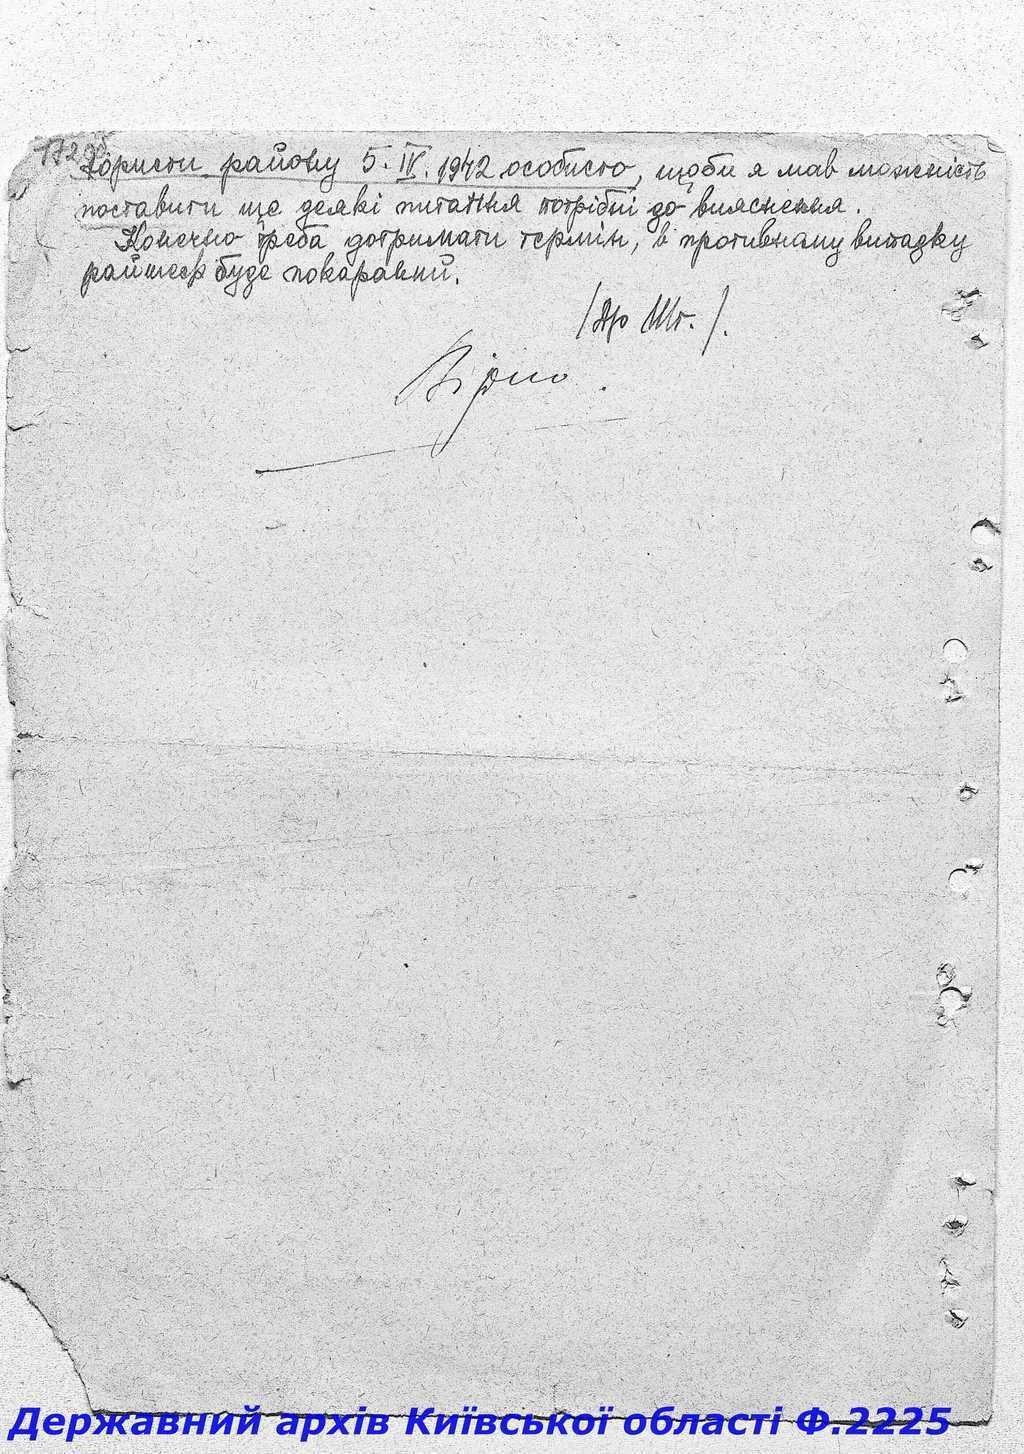 172
користи району 5. IV. 1942 особисто, щоби я мав можність
поставити ще деякі питання потрібні до вияснення.
Конечно треба дотримати термін, в противному випадку
райшеф буде покараний.
/Др Шт./.
Вірно.
Державний архів Київської області Ф.2225